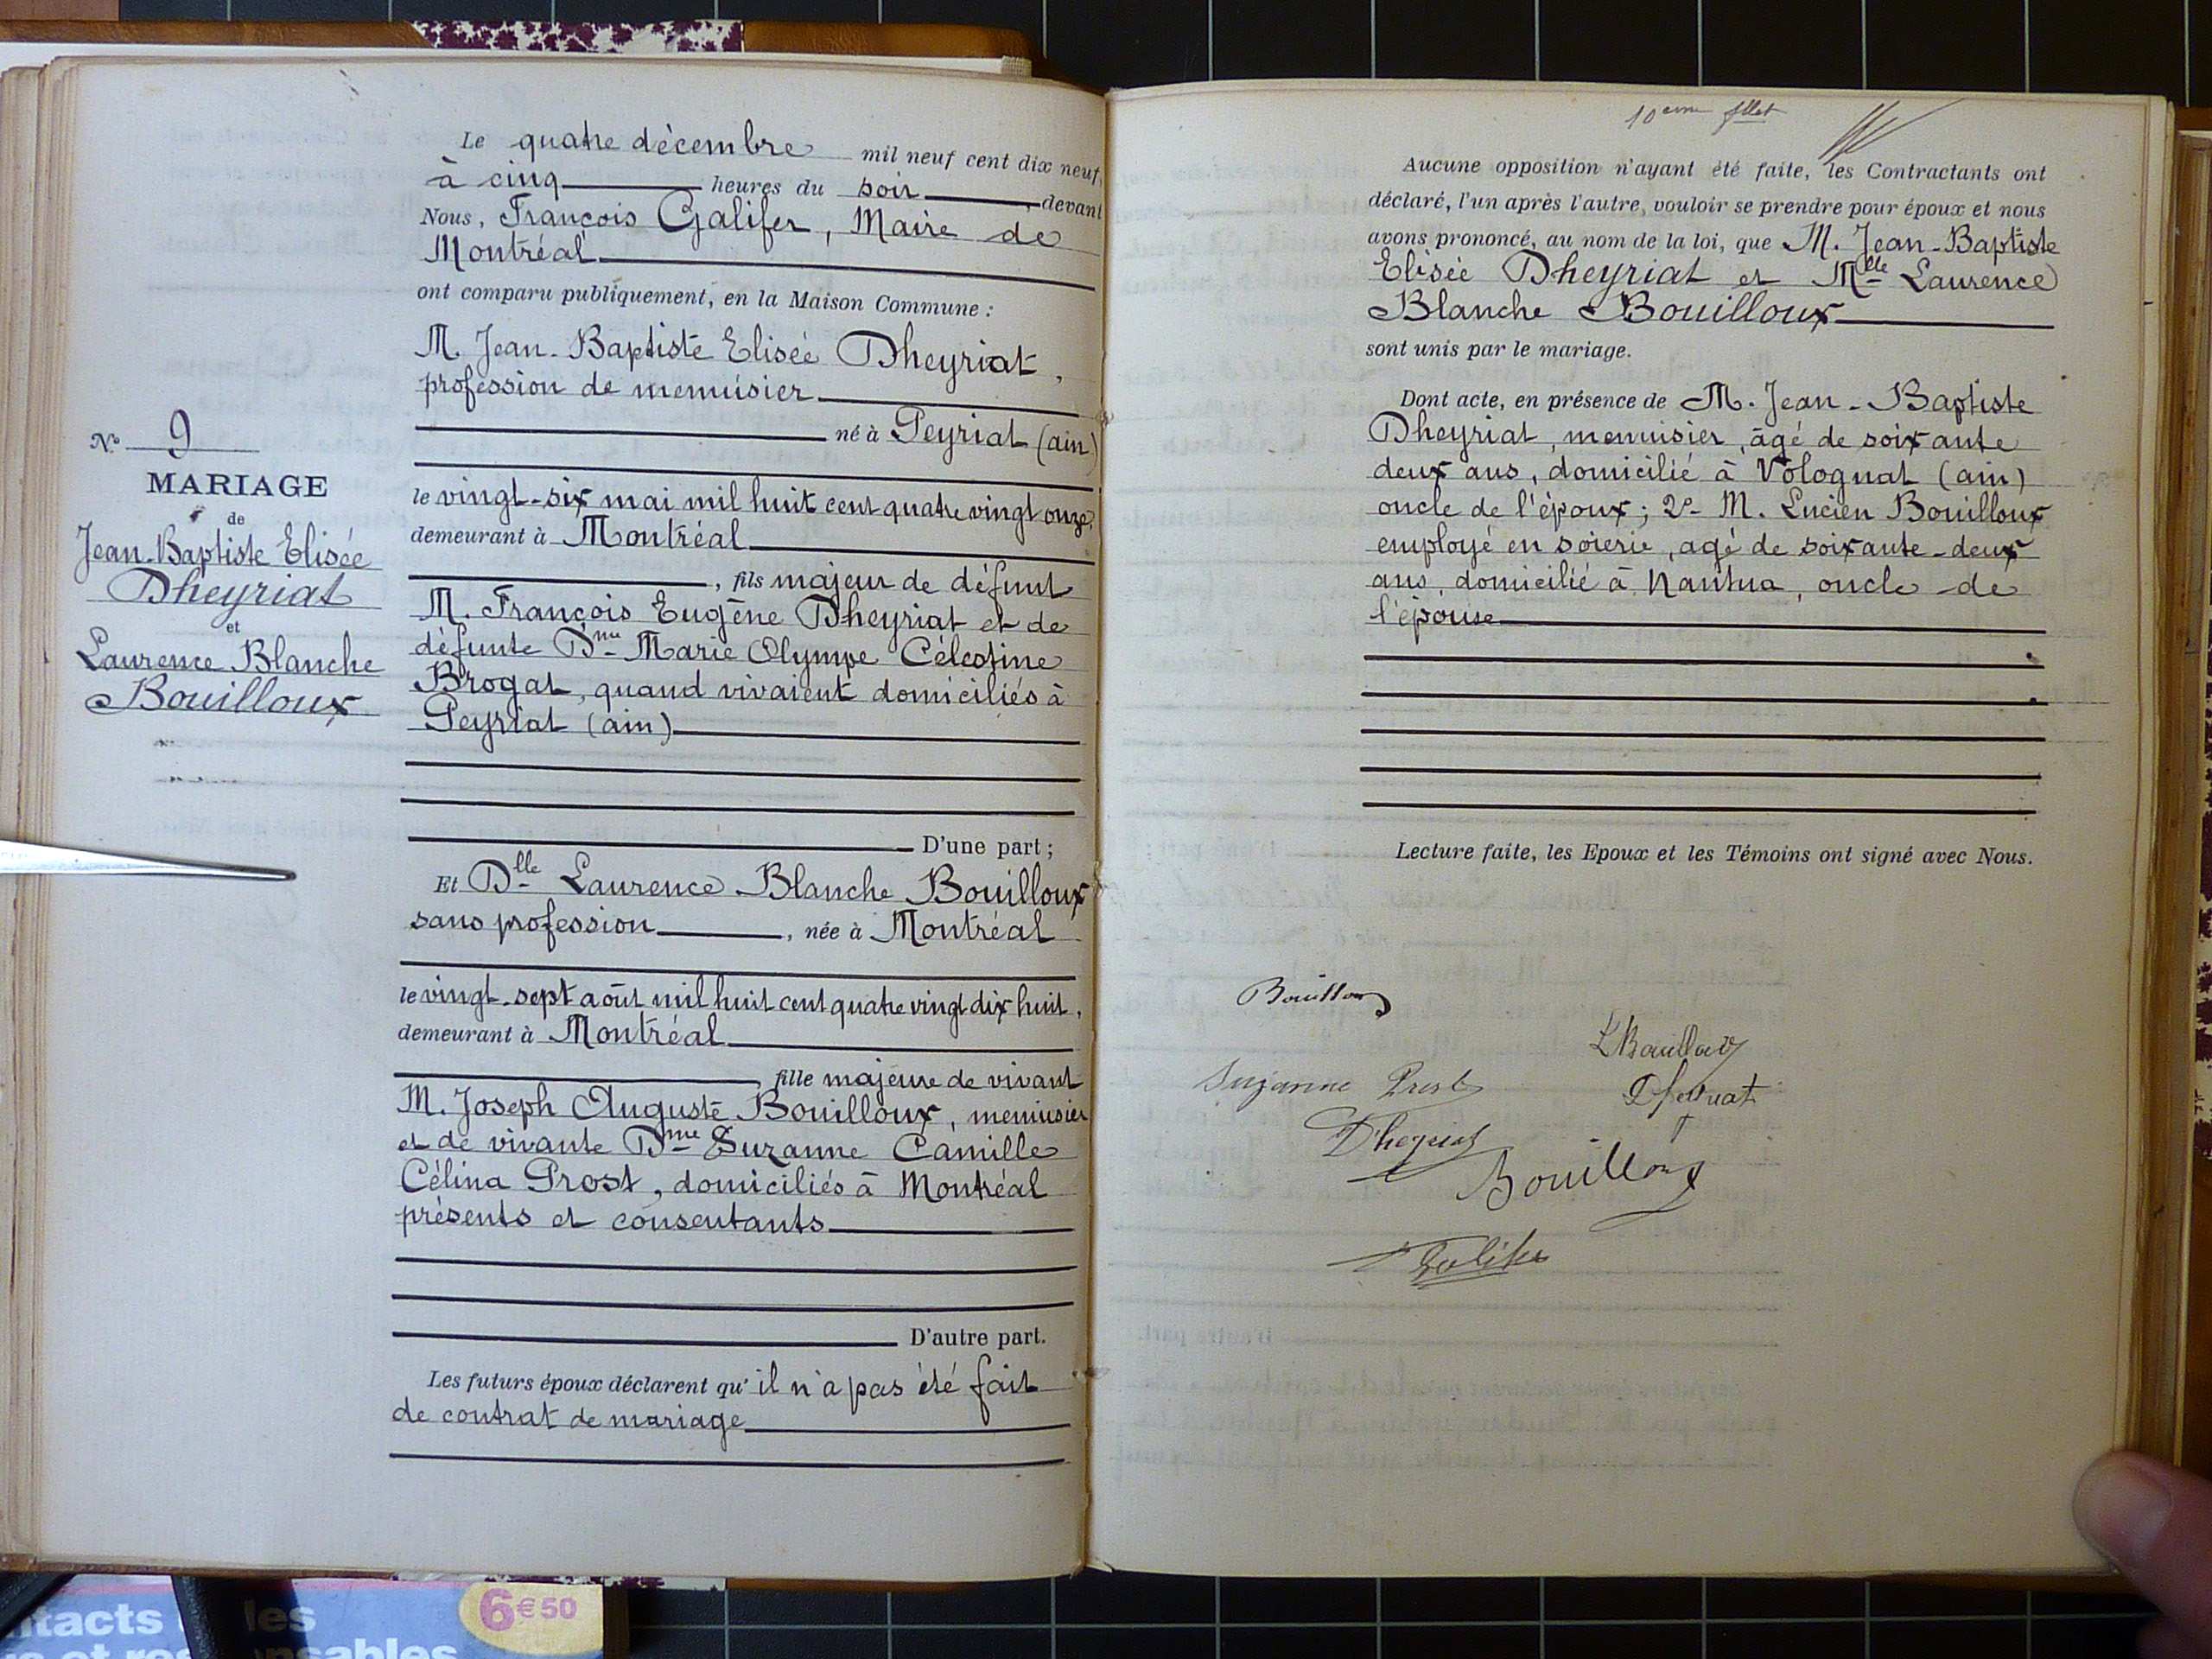 N° 9
MARIAGE
de
Jean-Baptiste Elisée
Dheyriat
et
Laurence Blanche
Bouilloux
Le quatre décembre mil neuf cent dix neuf,
à cinq heures du soir, devant
Nous, François Galifer, Maire de
Montréal
ont comparu publiquement, en la Maison Commune :
M. Jean-Baptiste Elisée Dheyriat,
profession de menuisier
né à Peyriat (ain)
le vingt-six mai mil huit cent quatre vingt onze,
demeurant à Montréal
, fils majeur de défunt
M. François Eugène Dheyriat et de
défunte Dme Marie Olympe Célestine
Brogat, quand vivaient domiciliés à
Peyriat (ain)
D'une part ;
Et Dlle Laurence Blanche Bouilloux
sans profession, née à Montréal
le vingt-sept août mil huit cent quatre vingt dix huit,
demeurant à Montréal
, fille majeure de vivant
M. Joseph Auguste Bouilloux, menuisier
et de vivante Dme Suzanne Camille
Célina Prost, domiciliés à Montréal
présents et consentants
D'autre part.
Les futurs époux déclarent qu'il n'a pas été fait
de contrat de mariage
10eme fllet
Aucune opposition n'ayant été faite, les Contractants ont
déclaré, l'un après l'autre, vouloir se prendre pour époux et nous
avons prononcé, au nom de la loi, que M. Jean-Baptiste
Elisée Dheyriat et Mlle Laurence
Blanche Bouilloux
sont unis par le mariage.
Dont acte, en présence de M. Jean-Baptiste
Dheyriat, menuisier, âgé de soixante
deux ans, domicilié à Volognat (ain)
oncle de l'époux ; 2° M. Lucien Bouilloux
employé en soierie, agé de soixante-deux
ans, domicilié à Nantua, oncle de
l'épouse
Lecture faite, les Epoux et les Témoins ont signé avec Nous.
Bouilloux
L Bouilloux
Suzanne Prost
Dheyriat
Dheyriat
Bouilloux
Galifer
6€50